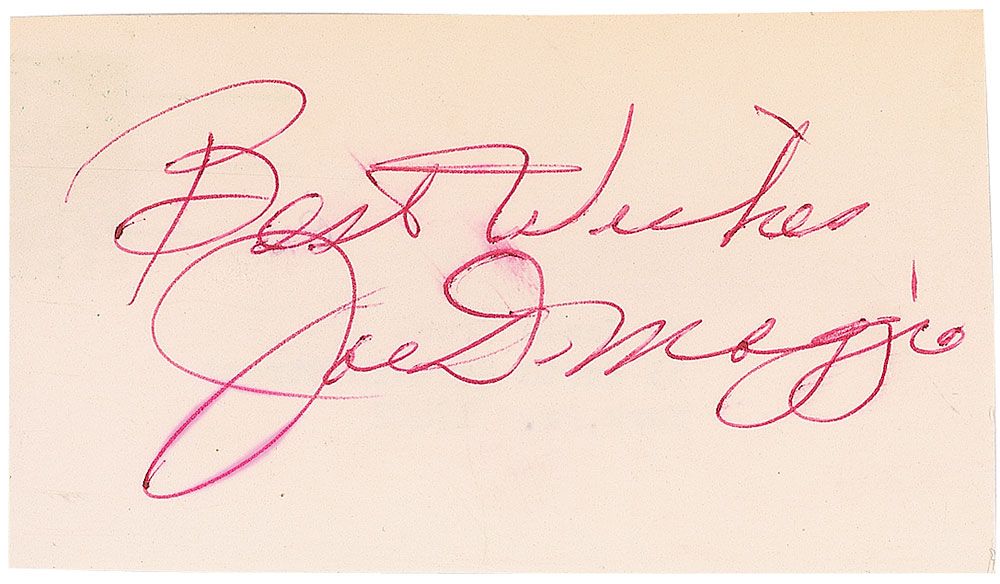 Best Wishes
Joe DiMaggio